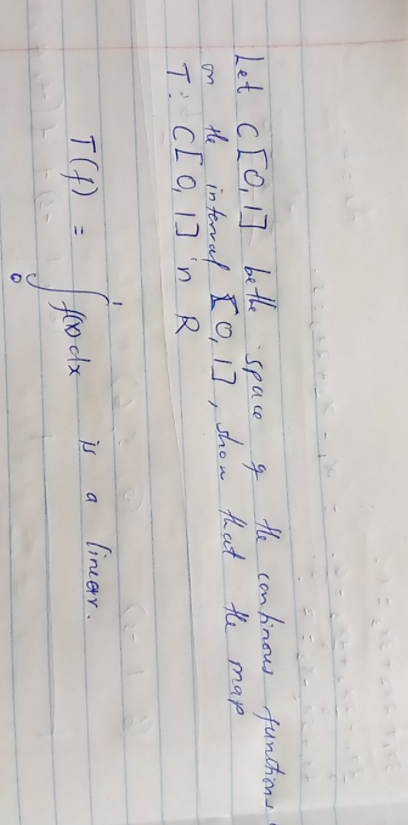 Let C[0,1] be the space of the continous functions
on the interval [0,1], show that the map
T: C[0,1] in R
T(f) = ∫₀¹ f(x)dx is a linear.